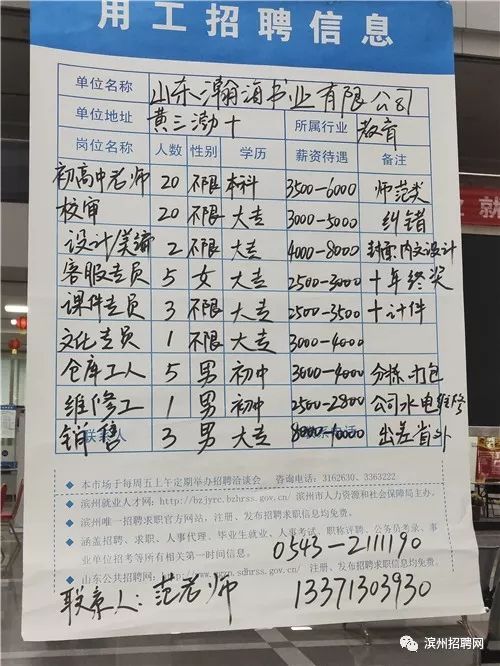 用工招聘信息
单位名称 山东瀚海书业有限公司
单位地址 黄三渤十 所属行业 教育
岗位名称 人数 性别 学历 薪资待遇 备注
初高中老师 20 不限 本科 3500-6000 师范类
校审 20 不限 大专 3000-5000 纠错
设计/美编 2 不限 大专 4000-8000 封面、内文设计
客服专员 5 女 大专 2500-3000 +年终奖
课件专员 3 不限 大专 2500-3500 +计件
文化专员 1 不限 大专 3000-4000
仓库工人 5 男 初中 3000-4000 分拣、打包
维修工 1 男 初中 2500-2800 公司水电维修
销售 3 男 大专 8000-10000 出差省外
◆ 本市场于每周五上午定期举办招聘洽谈会 咨询电话：3162630、3363222
◆ 滨州就业人才网：http://bzjyrc.bzhrss.gov.cn/ 滨州市人力资源和社会保障局主办。
◆ 滨州唯一招聘求职官方网站，注册、发布招聘求职信息均免费。
◆ 涵盖招聘、求职、人事代理、毕业生就业、人事考试、职称评聘、公务员考录、事
业单位招考等所有相关第一时间信息。
0543-2111190
◆ 山东公共招聘网 sdhrss.gov.cn/ 注册、发布招聘求职信息均免费。
联系人：范老师 13371303930
滨州招聘网